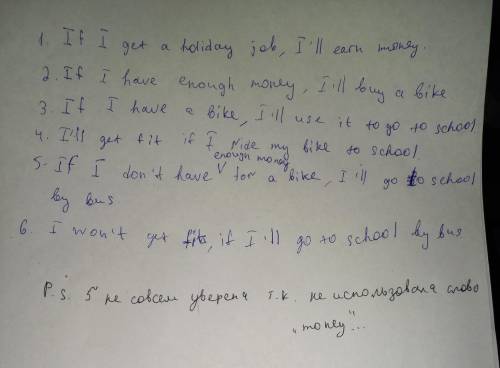 1. If I get a holiday job, I'll earn money.
2. If I have enough money, I'll buy a bike
3. If I have a bike, I'll use it to go to school
4. I'll get fit if I ride my bike to school.
enough money
5. If I don't have for a bike, I'll go to school
by bus
6. I won't get fit, if I'll go to school by bus
P.S. 5 не совсем уверена т.к. не использовала слово
"money"...